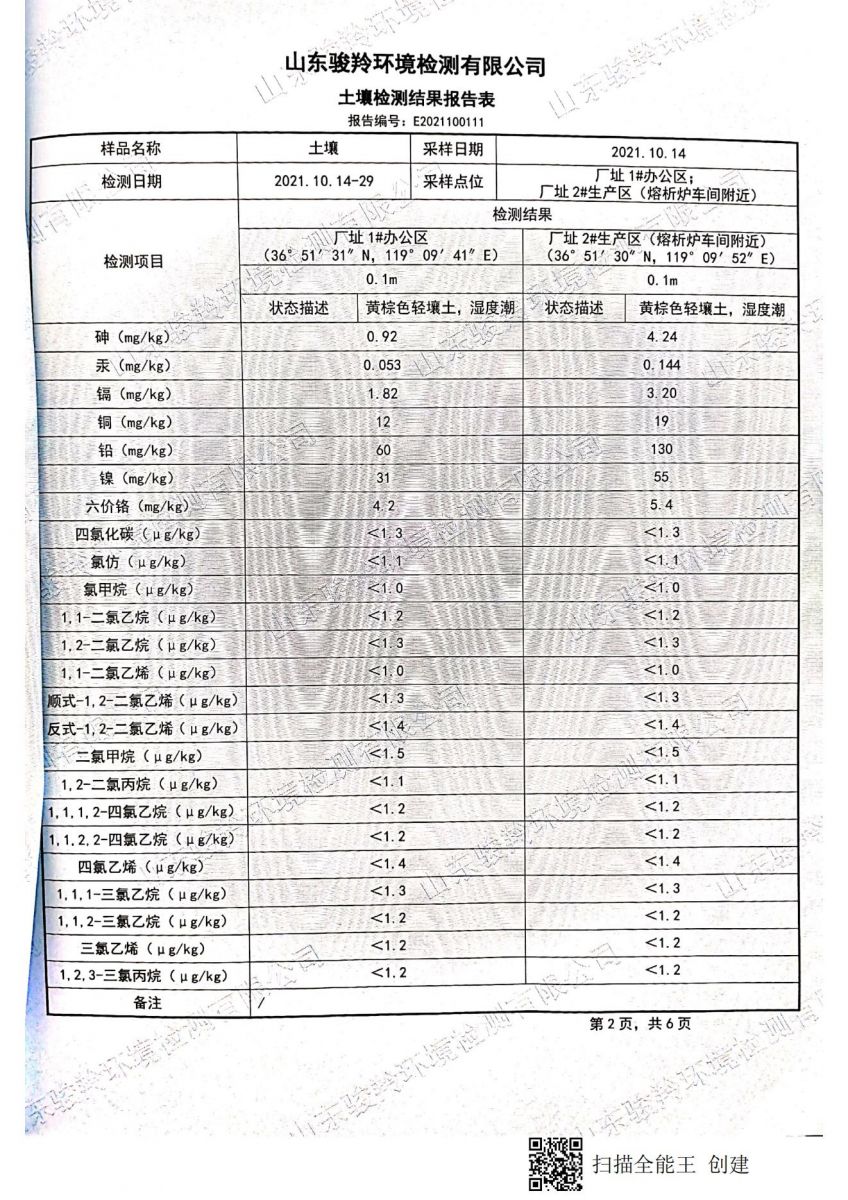 山东骏羚环境检测有限公司
土壤检测结果报告表
报告编号：E2021100111
样品名称 土壤 采样日期 2021.10.14
检测日期 2021.10.14-29 采样点位 厂址 1#办公区；
厂址 2#生产区（熔析炉车间附近）
检测项目 检测结果
厂址 1#办公区 厂址 2#生产区（熔析炉车间附近）
（36° 51′ 31″ N, 119° 09′ 41″ E） （36° 51′ 30″ N, 119° 09′ 52″ E）
0.1m 0.1m
状态描述 黄棕色轻壤土，湿度潮 状态描述 黄棕色轻壤土，湿度潮
砷（mg/kg） 0.92 4.24
汞（mg/kg） 0.053 0.144
镉（mg/kg） 1.82 3.20
铜（mg/kg） 12 19
铅（mg/kg） 60 130
镍（mg/kg） 31 55
六价铬（mg/kg） 4.2 5.4
四氯化碳（μg/kg） <1.3 <1.3
氯仿（μg/kg） <1.1 <1.1
氯甲烷（μg/kg） <1.0 <1.0
1,1-二氯乙烷（μg/kg） <1.2 <1.2
1,2-二氯乙烷（μg/kg） <1.3 <1.3
1,1-二氯乙烯（μg/kg） <1.0 <1.0
顺式-1,2-二氯乙烯（μg/kg） <1.3 <1.3
反式-1,2-二氯乙烯（μg/kg） <1.4 <1.4
二氯甲烷（μg/kg） <1.5 <1.5
1,2-二氯丙烷（μg/kg） <1.1 <1.1
1,1,1,2-四氯乙烷（μg/kg） <1.2 <1.2
1,1,2,2-四氯乙烷（μg/kg） <1.2 <1.2
四氯乙烯（μg/kg） <1.4 <1.4
1,1,1-三氯乙烷（μg/kg） <1.3 <1.3
1,1,2-三氯乙烷（μg/kg） <1.2 <1.2
三氯乙烯（μg/kg） <1.2 <1.2
1,2,3-三氯丙烷（μg/kg） <1.2 <1.2
备注 /
第 2 页，共 6 页
扫描全能王 创建